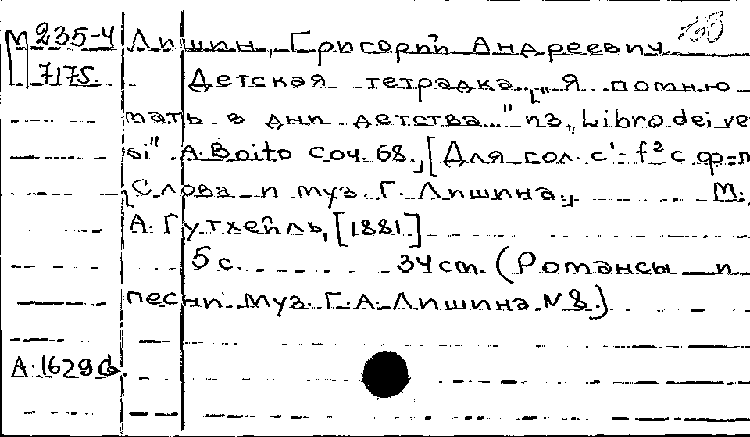 М 235-4 Лишин, Григорий Андреевич
7175. Детская тетрадка. "Я помню
мать в дни детства..." из "Libro dei ve
si" A. Boito Соч. 68., [Для гол. с¹-f² с ф=п
Слова и муз. Г. Лишина., М.,
А. Гутхейль, [1881]
5 с. 34 cm. (Романсы и
песни муз. Г. А. Лишина. № 8.)
А. 1629